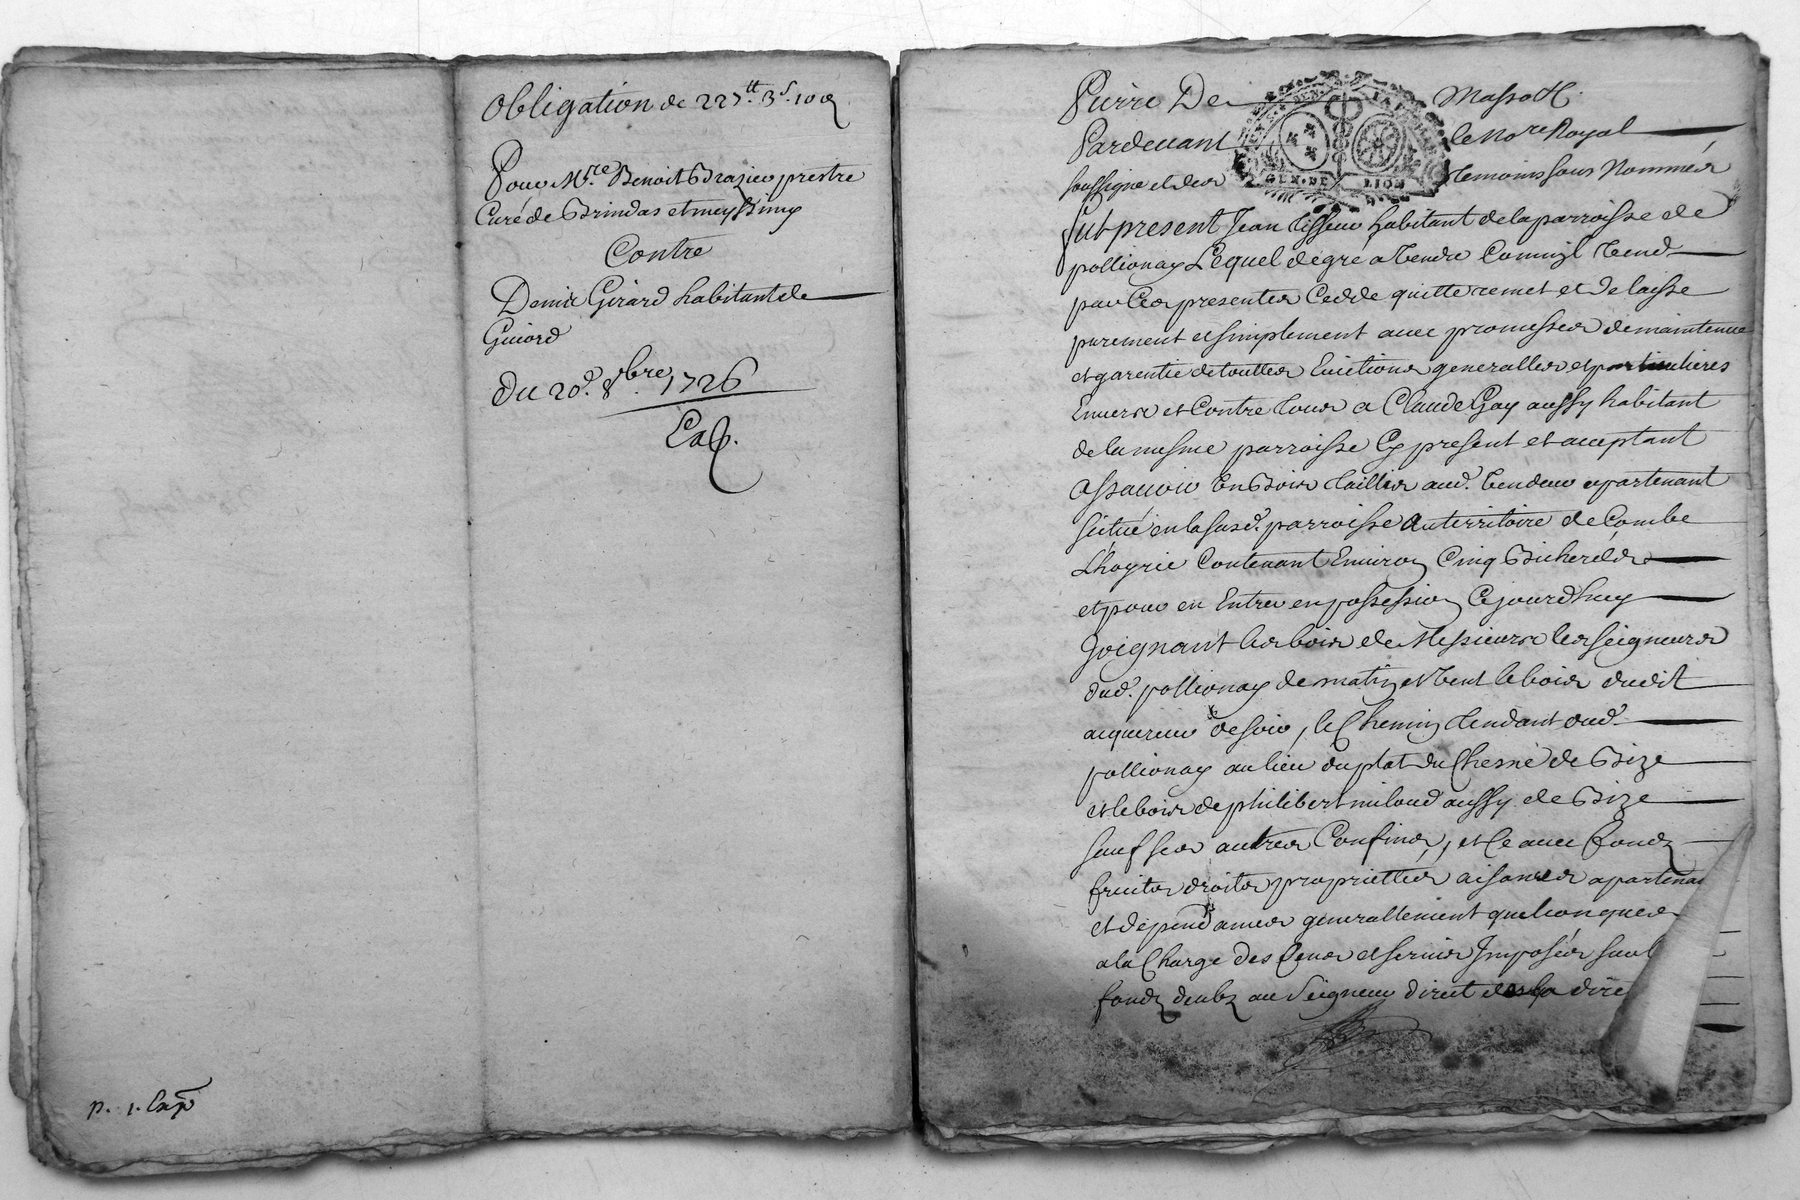 Obligation de 227.tt 3.s 10 d
Pour Mre. Benoit Brazier prestre
Curé de Brindas et meyssimy
Contre
Denis Girard habitant de
Du 20e. 8bre. 1726
p. 1. Exp
Pierre De Masso &
Pardevant le Nore Royal
soussigne et les temoins sous Nommés
GEN. DE LION
fut present Jean tisseur habitant de la parroisse de
pollionay Lequel de gré a vendu Comme jl vend
par Ces presentes Cedde quitte remet et delaisse
purement et simplement avec promesses de maintenue
et garentie de touttes Evictions generalles et particulieres
Envers et Contre tous a Claude Gay aussy habitant
de la mesme parroisse Cy present et acceptant
assavoir En Bois taillis aud. vendeur apartenant
scitué en la susd. parroisse au territoire de Combe
Contenant Environ Cinq Bicherées
et pour en Entrer en possession Cejourdhuy
Joignant les bois de Messieurs les seigneurs
dud. pollionay de matin et vent le bois dudit
acquereur de soir, le Chemin tendant dud.
pollionay au lieu du plat du Chesne de Bize
et le bois de philibert aussy de Bize
sauf ses autres Confins, et Ce avec fondz
fruits droits propriettés aisances apartenan
et dependances generallement quelconques
a la Charge des Cens et servis Imposés sur le
fondz deubz au Seigneur direct